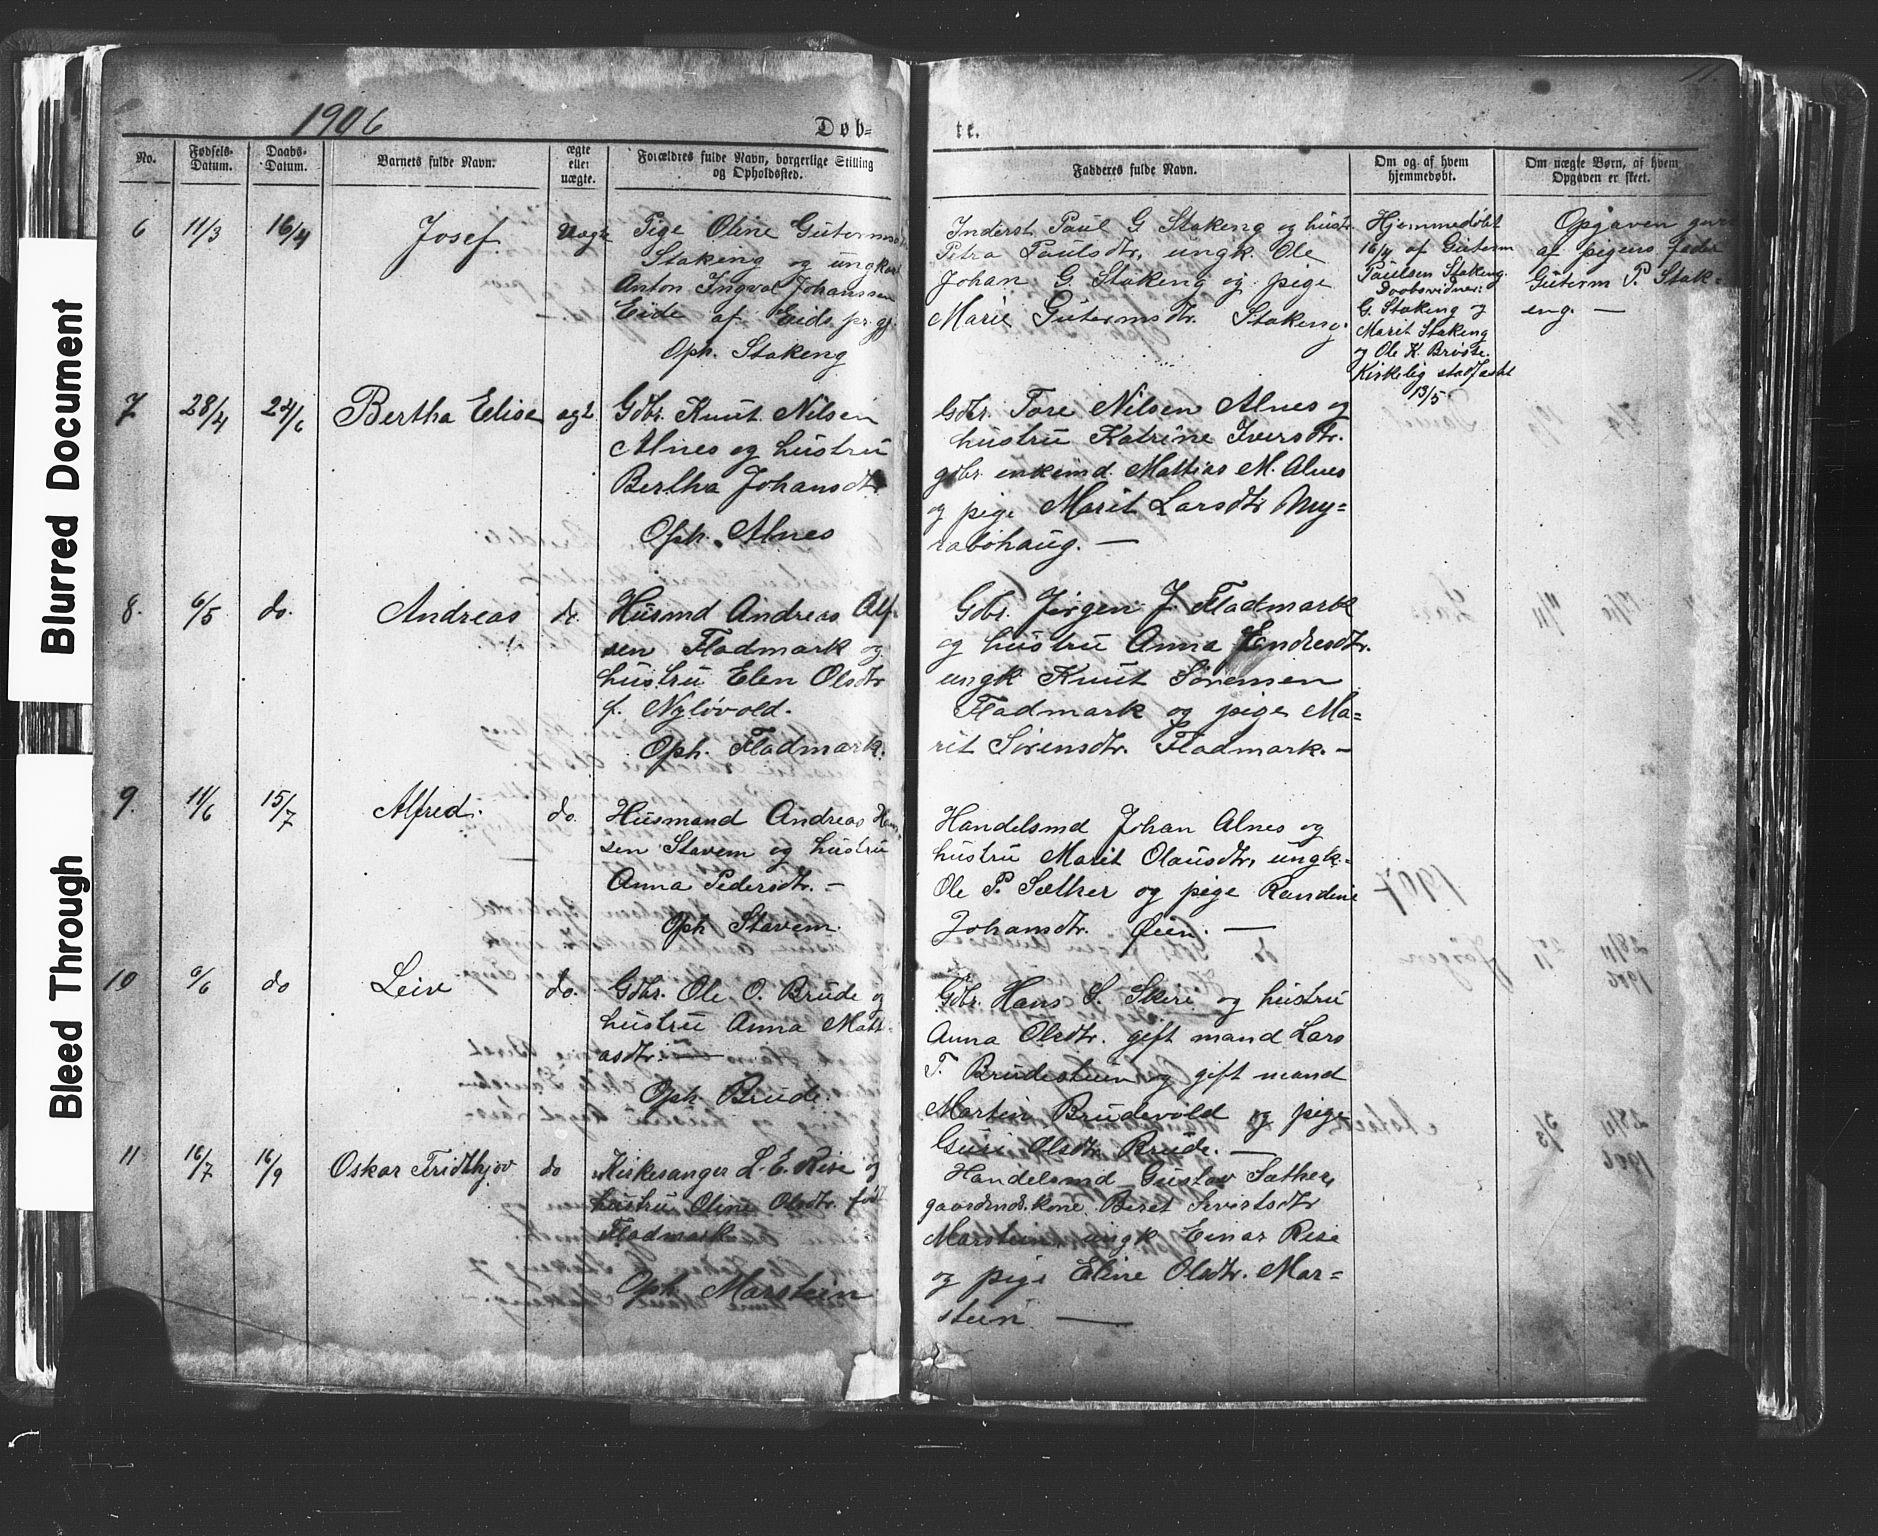 Blurred Document
Bleed Through
1906
Døb=
No.
Fødsels-
Datum.
Daabs-
Datum.
Barnets fulde Navn.
ægte
eller
uægte.
Forældres fulde Navn, borgerlige Stilling
og Opholdssted.
6
11/3
16/4
Josef
Uægte
Pige Oline Gutormsdtr
Stakeng og ungkar
Anton Ingval Johanssen
Eide af Eids pr.gj.
Oph. Stakeng
7
28/4
24/6
Bertha Elise
ægte
Gdbr. Knut Nilsen
Alnes og hustru
Bertha Johansdtr
Oph. Alnes
8.
6/5
do.
Andreas
do
Husmd Andreas Alf-
sen Fladmark og
hustru Elen Olsdtr
f. Nyløvold.
Oph. Fladmark.
9.
11/6
15/7
Alfred.
do.
Husmand Andreas Han-
sen Stavem og hustru
Anna Pedersdtr. —
Oph Stavem.
10
9/6
do
Leiv
do.
Gdbr. Ole O. Brude og
hustru Anna Matt-
asdtr. —
Oph. Brude.
11
16/7
16/9
Oskar Fridthjov
do
Kirkesanger L. E. Rise og
hustru Oline Olsdtr. født
Fladmark
Oph. Marstein
11.
te.
Fadderes fulde Navn.
Om og af hvem
hjemmedøbt.
Om uægte Børn, af hvem
Opgaven er skeet.
Inderst Paul G Stakeng og hustr
Petra Paulsdtr, ungk. Ole
Johan G. Stakeng og pige
Marie Gutormsdtr. Stakeng.
Hjemmedøbt
16/4 af Guterm
Paulsen Stakeng.
Daabsvidner:
G. Stakeng og
Marit Stakeng
og Ole K. Brøste.
Kirkelig stadfæstet
13/5
Opgaven
af pigens fader
Guterm P. Stak-
eng. —
Gdbr. Tore Nilsen Alnes og
hustru Katrine Iversdtr.
gdbr. enkemd. Mattias M. Alnes
og pige Marit Larsdtr My=
rabøhaug. —
Gbr. Jørgen J. Fladmark
og hustru Anna Endresdtr.
ungk Knut Sørensen
Fladmark og pige Ma=
rit Sørensdtr. Fladmark. —
Handelsmd Johan Alnes og
hustru Marit Olausdtr, ungk.
Ole P. Sæther og pige Randine
Johansdtr. Øien. —
Gdbr. Hans S. Skiri og hustru
Anna Olsdtr. gift mand Lars
T. Brudestuen og gift mand
Martin Brudevold og pige
Guri Olsdtr Brude. —
Handelsmd Gustav Sæther,
gaardmdskone Beret Sivertsdtr
Marstein, ungk Einar Rise
og pige Eline Olsdtr. Mar=
stein —